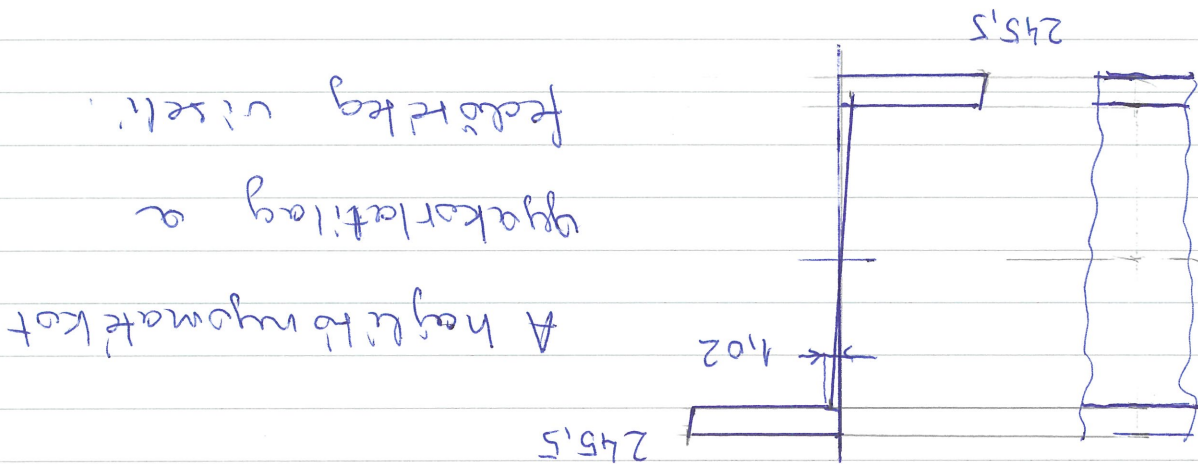 245,5
1,02
A hajlítónyomatékot
gyakorlatilag a
fedőréteg viseli.
245,5